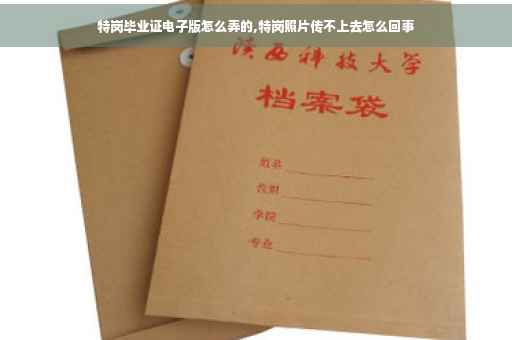 特岗毕业证电子版怎么弄的,特岗照片传不上去怎么回事
陕西科技大学
档案袋
学院
专业